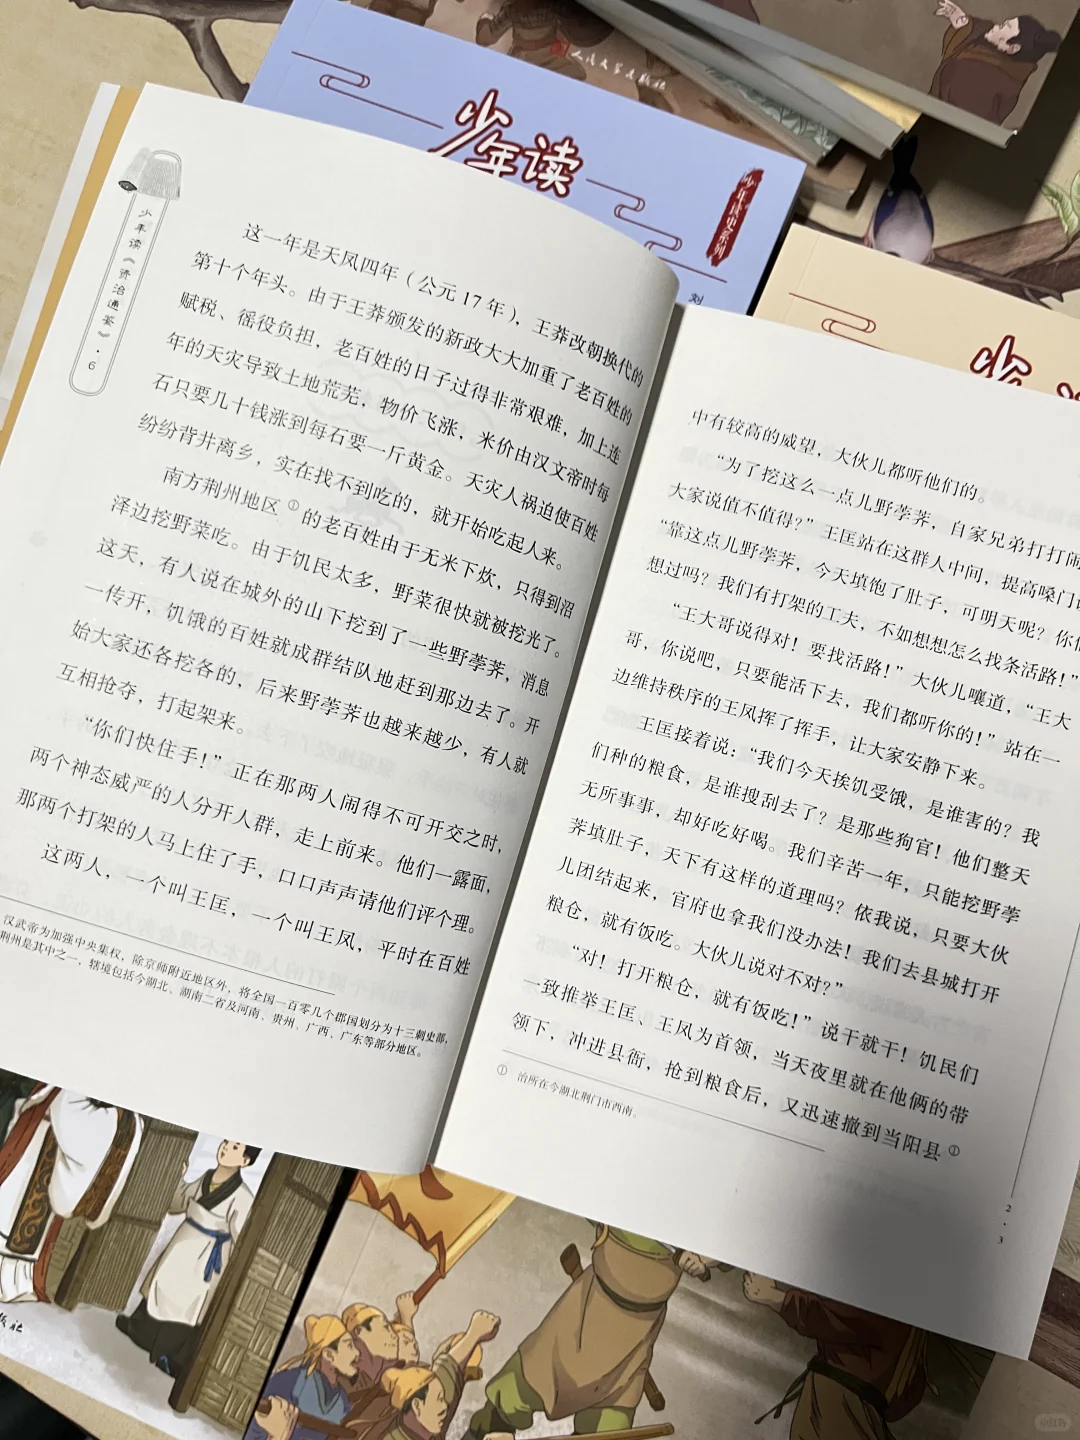 人民文学出版社
少年读
少年读史系列
刘
少年读《资治通鉴》·6
这一年是天凤四年（公元17年），王莽改朝换代的
第十个年头。由于王莽颁发的新政大大加重了老百姓的
赋税、徭役负担，老百姓的日子过得非常艰难，加上连
年的天灾导致土地荒芜，物价飞涨，米价由汉文帝时每
石只要几十钱涨到每石要一斤黄金。天灾人祸迫使百姓
纷纷背井离乡，实在找不到吃的，就开始吃起人来。
南方荆州地区①的老百姓由于无米下炊，只得到沼
泽边挖野菜吃。由于饥民太多，野菜很快就被挖光了。
这天，有人说在城外的山下挖到了一些野荸荠，消息
一传开，饥饿的百姓就成群结队地赶到那边去了。开
始大家还各挖各的，后来野荸荠也越来越少，有人就
互相抢夺，打起架来。
“你们快住手！”正在那两人闹得不可开交之时，
两个神态威严的人分开人群，走上前来。他们一露面，
那两个打架的人马上住了手，口口声声请他们评个理。
这两人，一个叫王匡，一个叫王凤，平时在百姓
汉武帝为加强中央集权，除京师附近地区外，将全国一百零几个郡国划分为十三刺史部，
荆州是其中之一，辖境包括今湖北、湖南二省及河南、贵州、广西、广东等部分地区。
中有较高的威望，大伙儿都听他们的。
“为了挖这么一点儿野荸荠，自家兄弟打打闹
大家说值不值得？”王匡站在这群人中间，提高嗓门
“靠这点儿野荸荠，今天填饱了肚子，可明天呢？你们
想过吗？我们有打架的工夫，不如想想怎么找条活路！”
“王大哥说得对！要找活路！”大伙儿嚷道，“王大
哥，你说吧，只要能活下去，我们都听你的！”站在一
边维持秩序的王凤挥了挥手，让大家安静下来。
王匡接着说：“我们今天挨饥受饿，是谁害的？我
们种的粮食，是谁搜刮去了？是那些狗官！他们整天
无所事事，却好吃好喝。我们辛苦一年，只能挖野荸
荠填肚子，天下有这样的道理吗？依我说，只要大伙
儿团结起来，官府也拿我们没办法！我们去县城打开
粮仓，就有饭吃。大伙儿说对不对？”
“对！打开粮仓，就有饭吃！”说干就干！饥民们
一致推举王匡、王凤为首领，当天夜里就在他俩的带
领下，冲进县衙，抢到粮食后，又迅速撤到当阳县①
① 治所在今湖北荆门市西南。
2·3
小红书